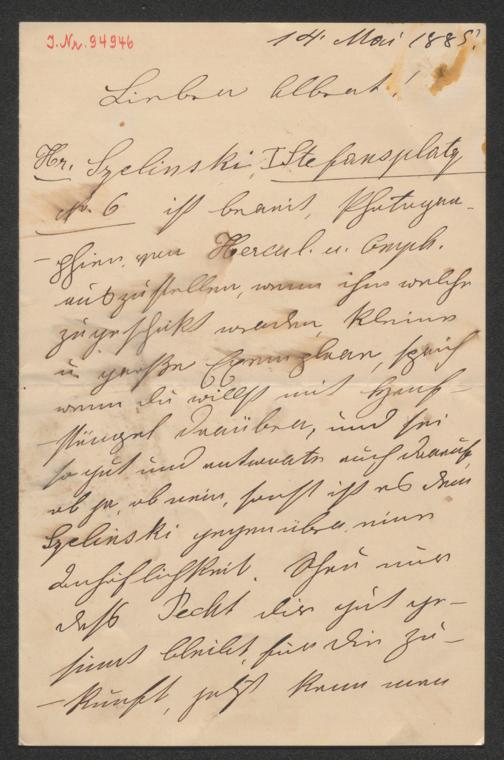 J.Nr. 94946
14. Mai 1885!
Lieber Albert!
Hr. Szelinski, I Stefansplatz
No. 6 ist bereit, Photogra-
-phien von Hercul. u. Omph.
auszustellen, wenn ihm welche
zugeschikt werden, kleine
u. große Exemplare, sprich
wenn du willst mit Hanf-
-stängel darüber, und sei
so gut und antworte auch darauf,
ob ja, ob nein, sonst ist es dem
Szelinski gegenüber eine
Unhöflichkeit. Schau nur
daß Pecht dir gut ge-
sinnt bleibt, für die Zu-
-kunft, jetzt kann man